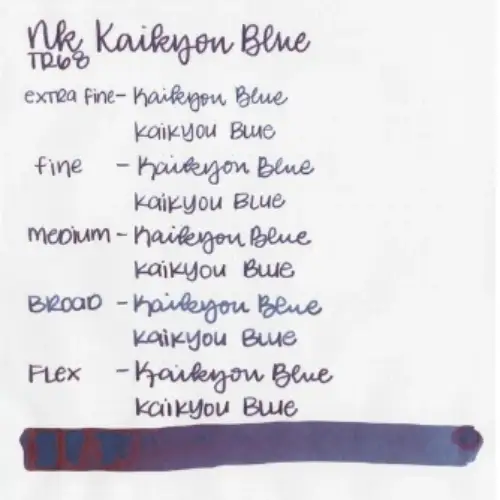 NK Kaikyou Blue
TR68
extra fine - Kaikyou Blue
Kaikyou Blue
fine - Kaikyou Blue
Kaikyou Blue
medium - Kaikyou Blue
Kaikyou Blue
Broad - Kaikyou Blue
Kaikyou Blue
Flex - Kaikyou Blue
Kaikyou Blue